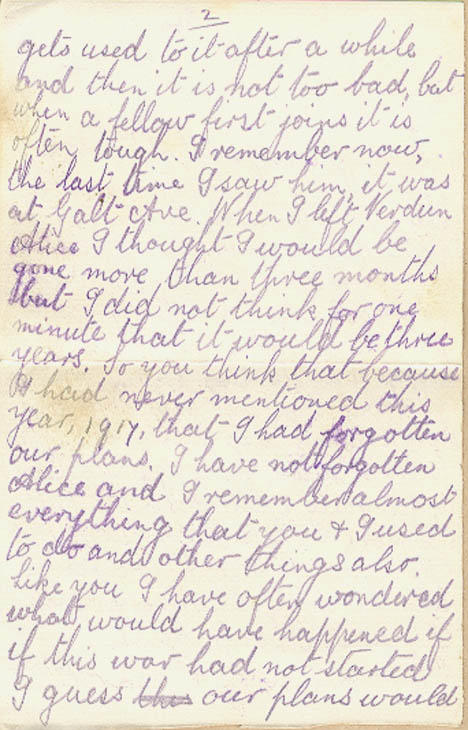 2
gets used to it after a while
and then it is not too bad, but
when a fellow first joins it is
often tough. I remember now,
the last time I saw him, it was
at Galt Ave. When I left Verdun
Alice I thought I would be
gone more than three months
but I did not think for one
minute that it would be three
years. So you think that because
I had never mentioned this
year, 1917, that I had forgotten
our plans. I have not forgotten
Alice and I remember almost
everything that you & I used
to do and other things also.
Like you I have often wondered
what would have happened if
if this war had not started
I guess this our plans would